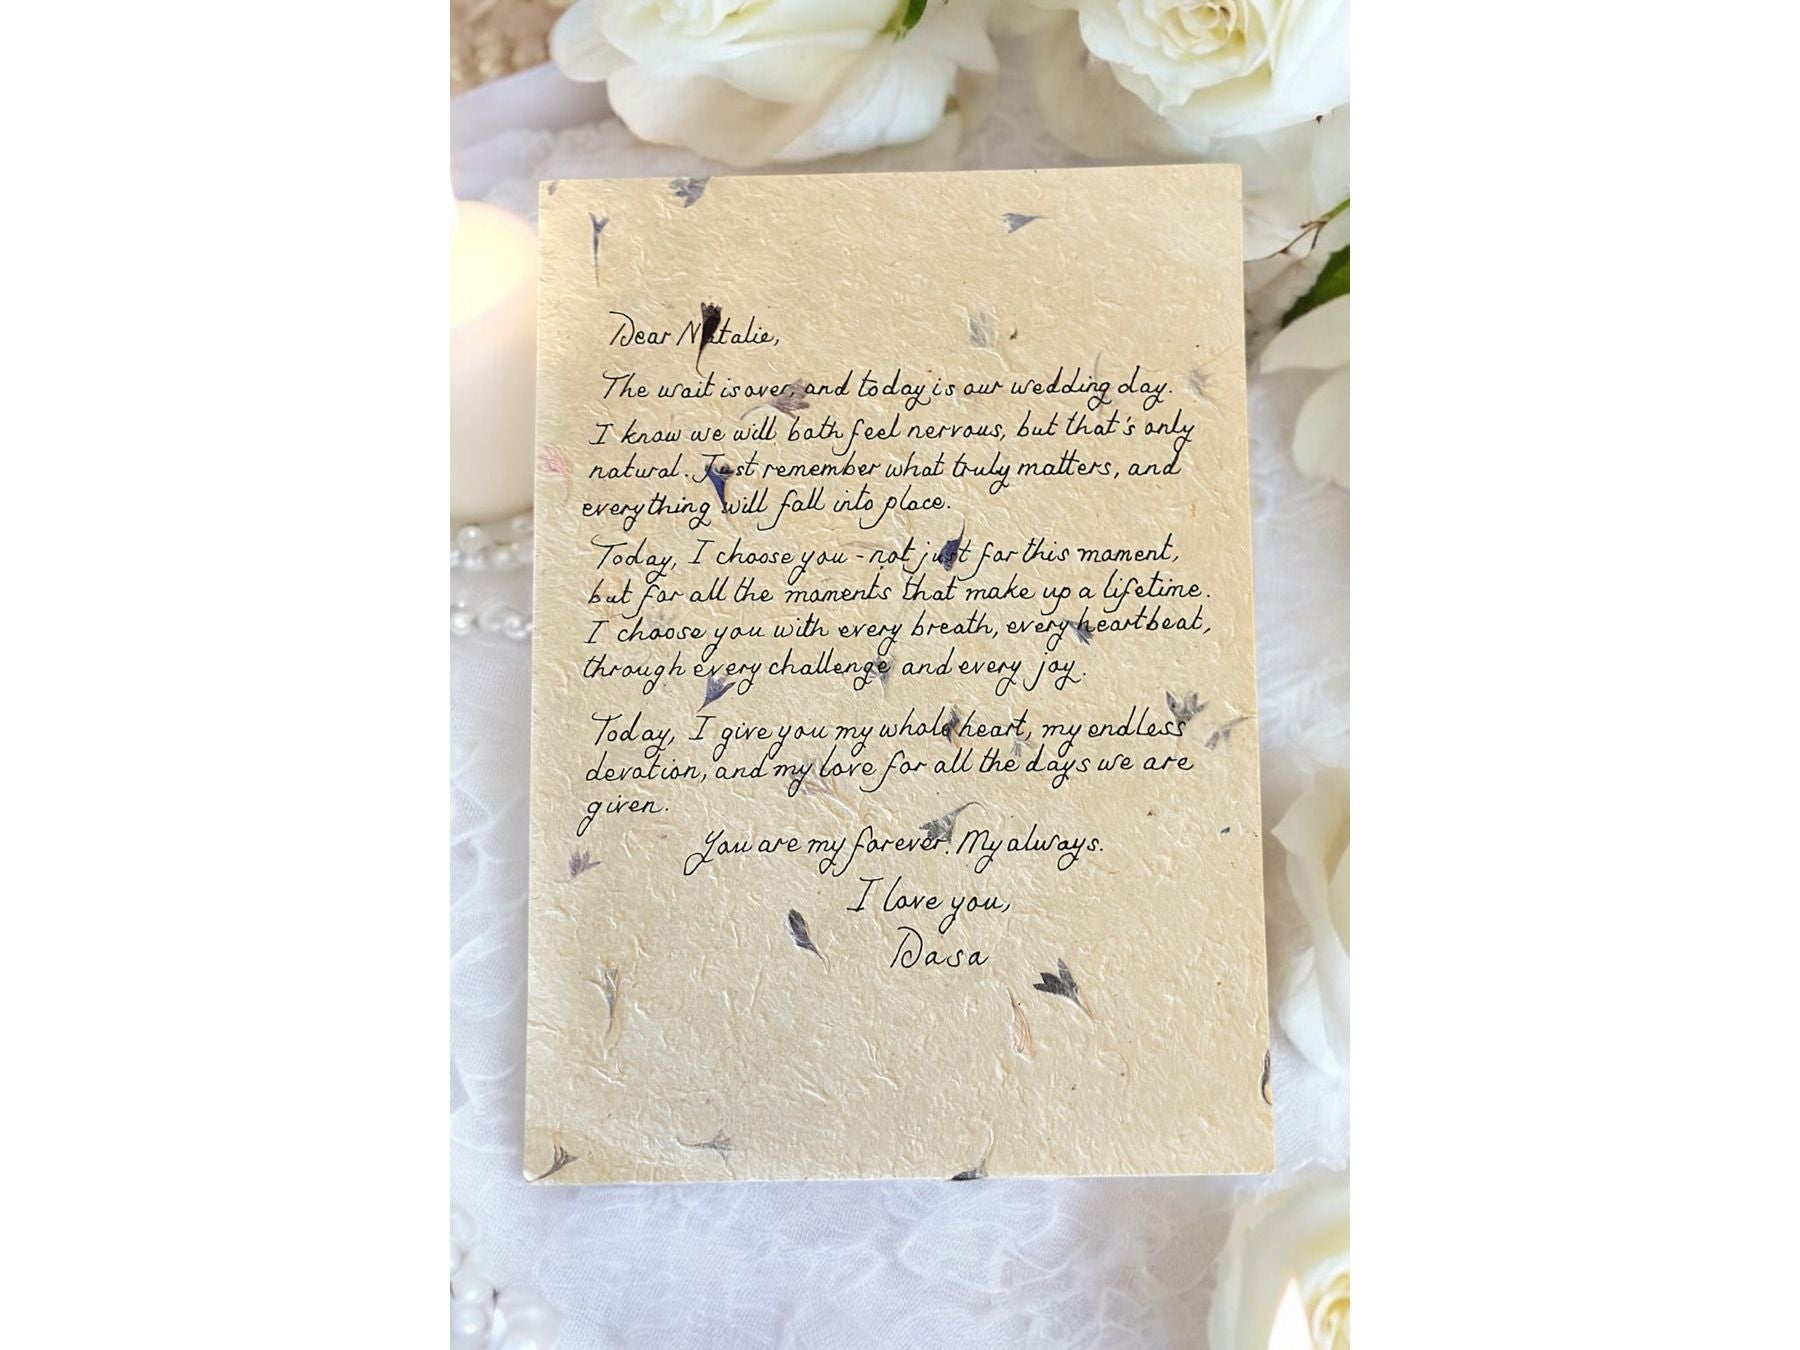 Dear Natalie,
The wait is over, and today is our wedding day.
I know we will both feel nervous, but that's only
natural. Just remember what truly matters, and
everything will fall into place.
Today, I choose you - not just for this moment,
but for all the moments that make up a lifetime.
I choose you with every breath, every heartbeat,
through every challenge and every joy.
Today, I give you my whole heart, my endless
devotion, and my love for all the days we are
given.
You are my forever. My always.
I love you,
Dasa